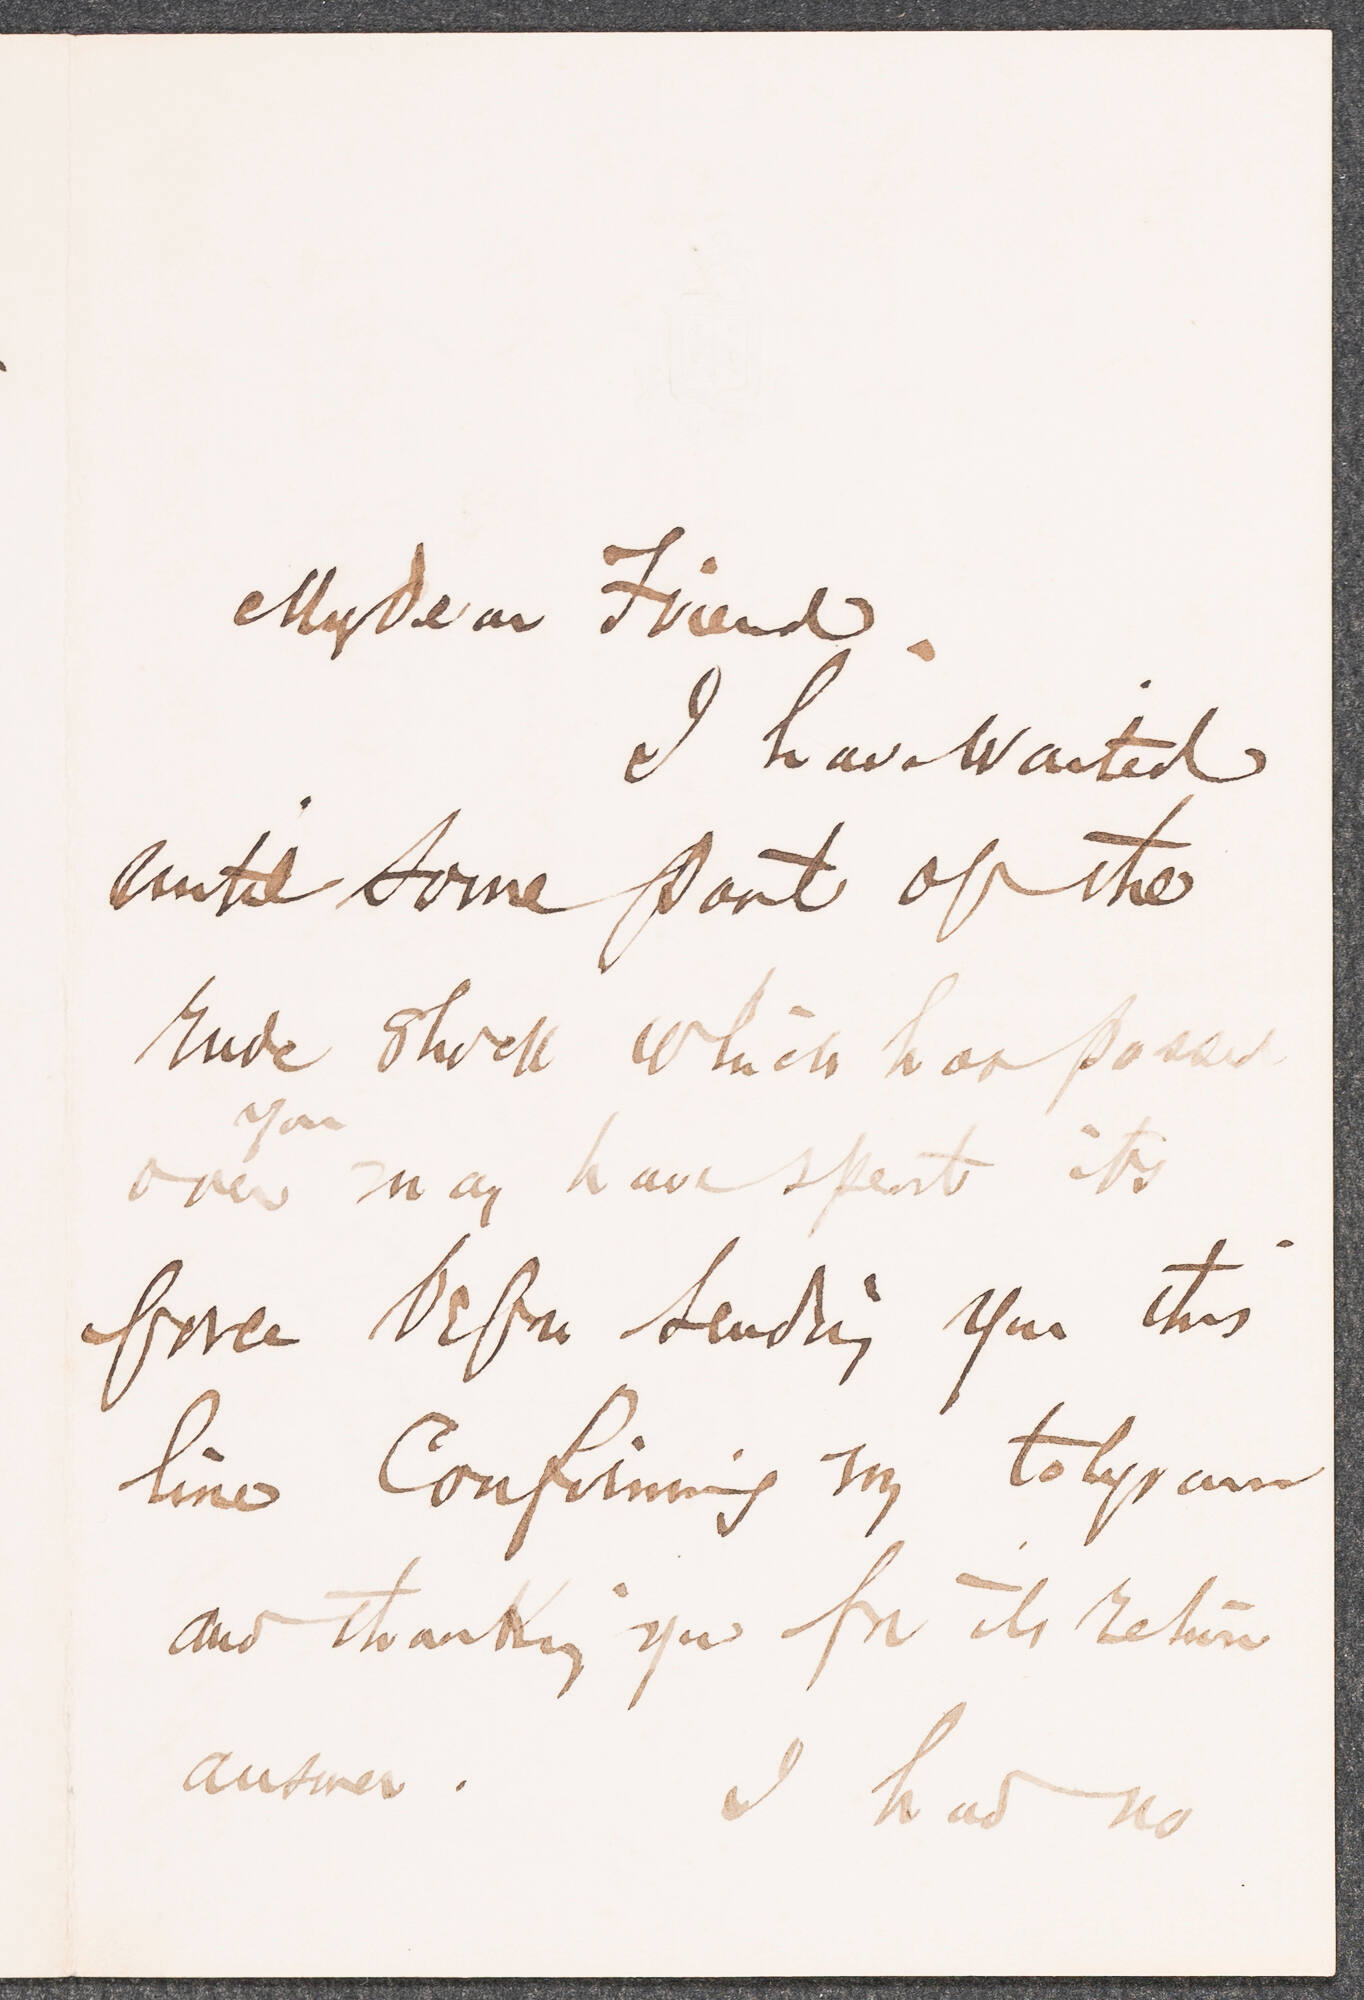 My Dear Friend.
I have waited
until some part of the
rude shock which has passed
you
over may have spent its
force before sending you this
line Confirming my telegram
and thanking you for its return
answer. I had no